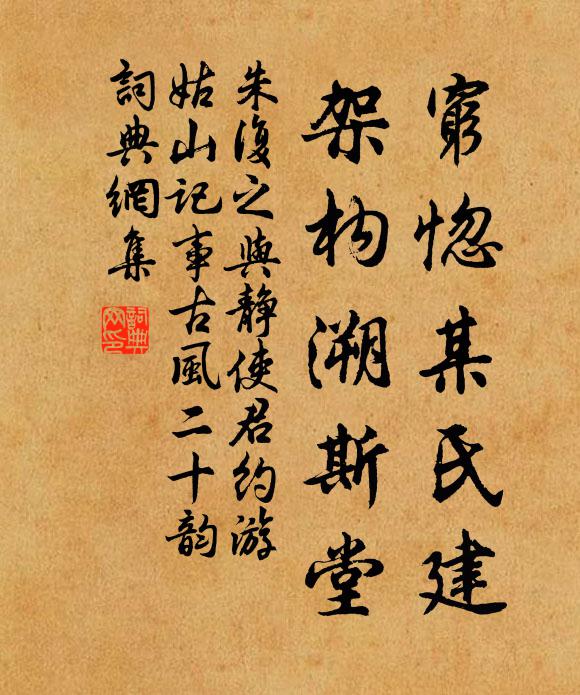 窮惚某氏建
架构溯斯堂
朱復之與靜使君約游
姑山记事古風二十韵
詞典網集
詞典網印